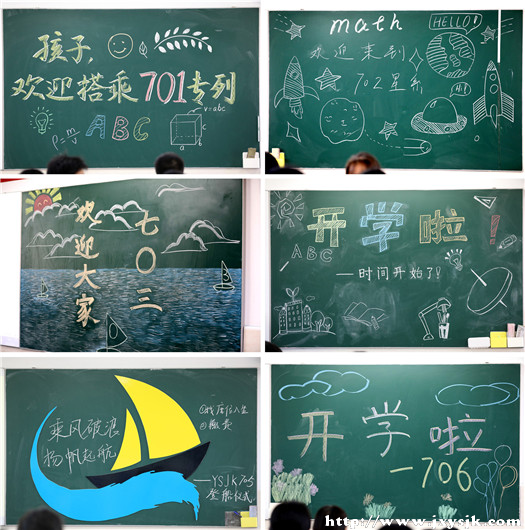 孩子,
欢迎搭乘701专列
ABC
ρ=m/v
v=abc
a
b
c
math
HELLO!
欢迎来到
702星系
Hi!
欢迎大家
七〇三
开学啦!
ABC
——时间开始了!
乘风破浪
扬帆起航
——YSJK705
登船仪式
开学啦
-706
http://www.jxysjk.com